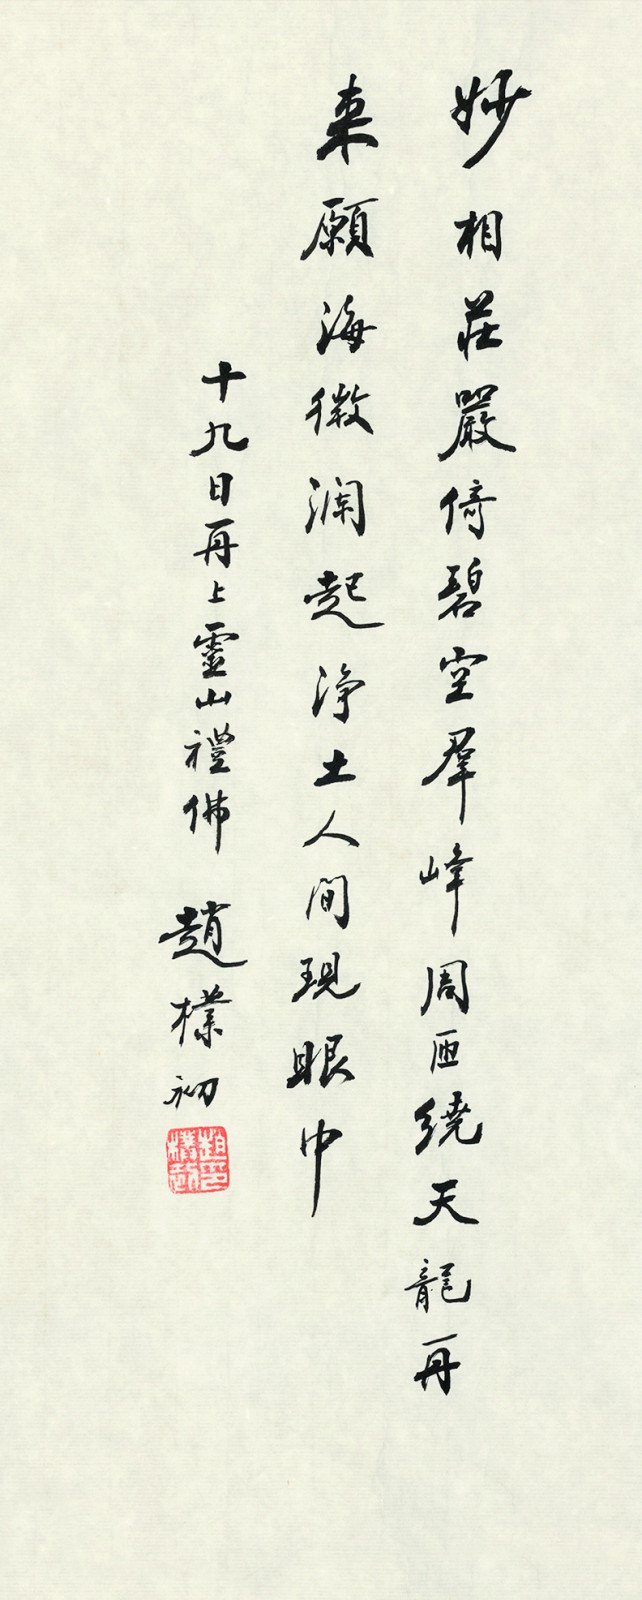 妙相莊嚴倚碧空羣峰周匝繞天龍再
来願海微瀾起淨土人間現眼中
十九日再上靈山禮佛 趙樸初
趙樸初印